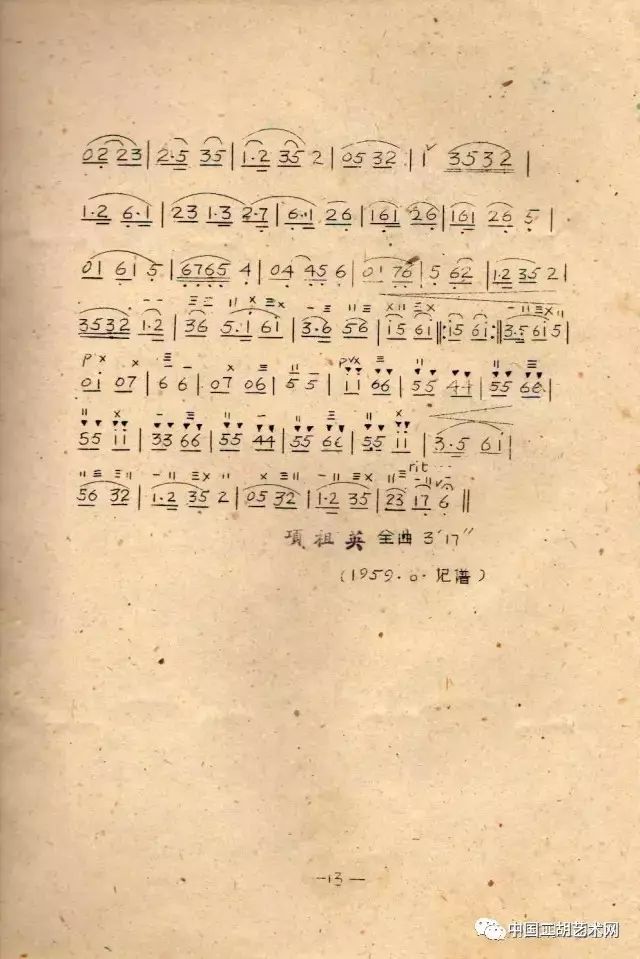 02 23 | 2·5 35 | 1·2 35 2 | 05 32 | 1 3532 |
1·2 6·1 | 23 1·3 2·7 | 6·1 26 | 161 26 | 161 26 5 |
01 61 5 | 6765 4 | 04 45 6 | 01 76 | 5 62 | 1·2 35 2 |
3532 1·2 | 36 5·1 61 | 3·6 56 | 15 61 ‖: 15 61 :‖ 3·5 61 5 |
01 07 | 6 6 | 07 06 | 5 5 | 11 66 | 55 44 | 55 66 |
55 11 | 33 66 | 55 44 | 55 66 | 55 11 | 3·5 61 |
rit...
56 32 | 1·2 35 2 | 05 32 | 1·2 35 | 23 17 6 ‖
項祖英 全曲 3′17″
(1959.0.记谱)
—13—
中国二胡艺术网